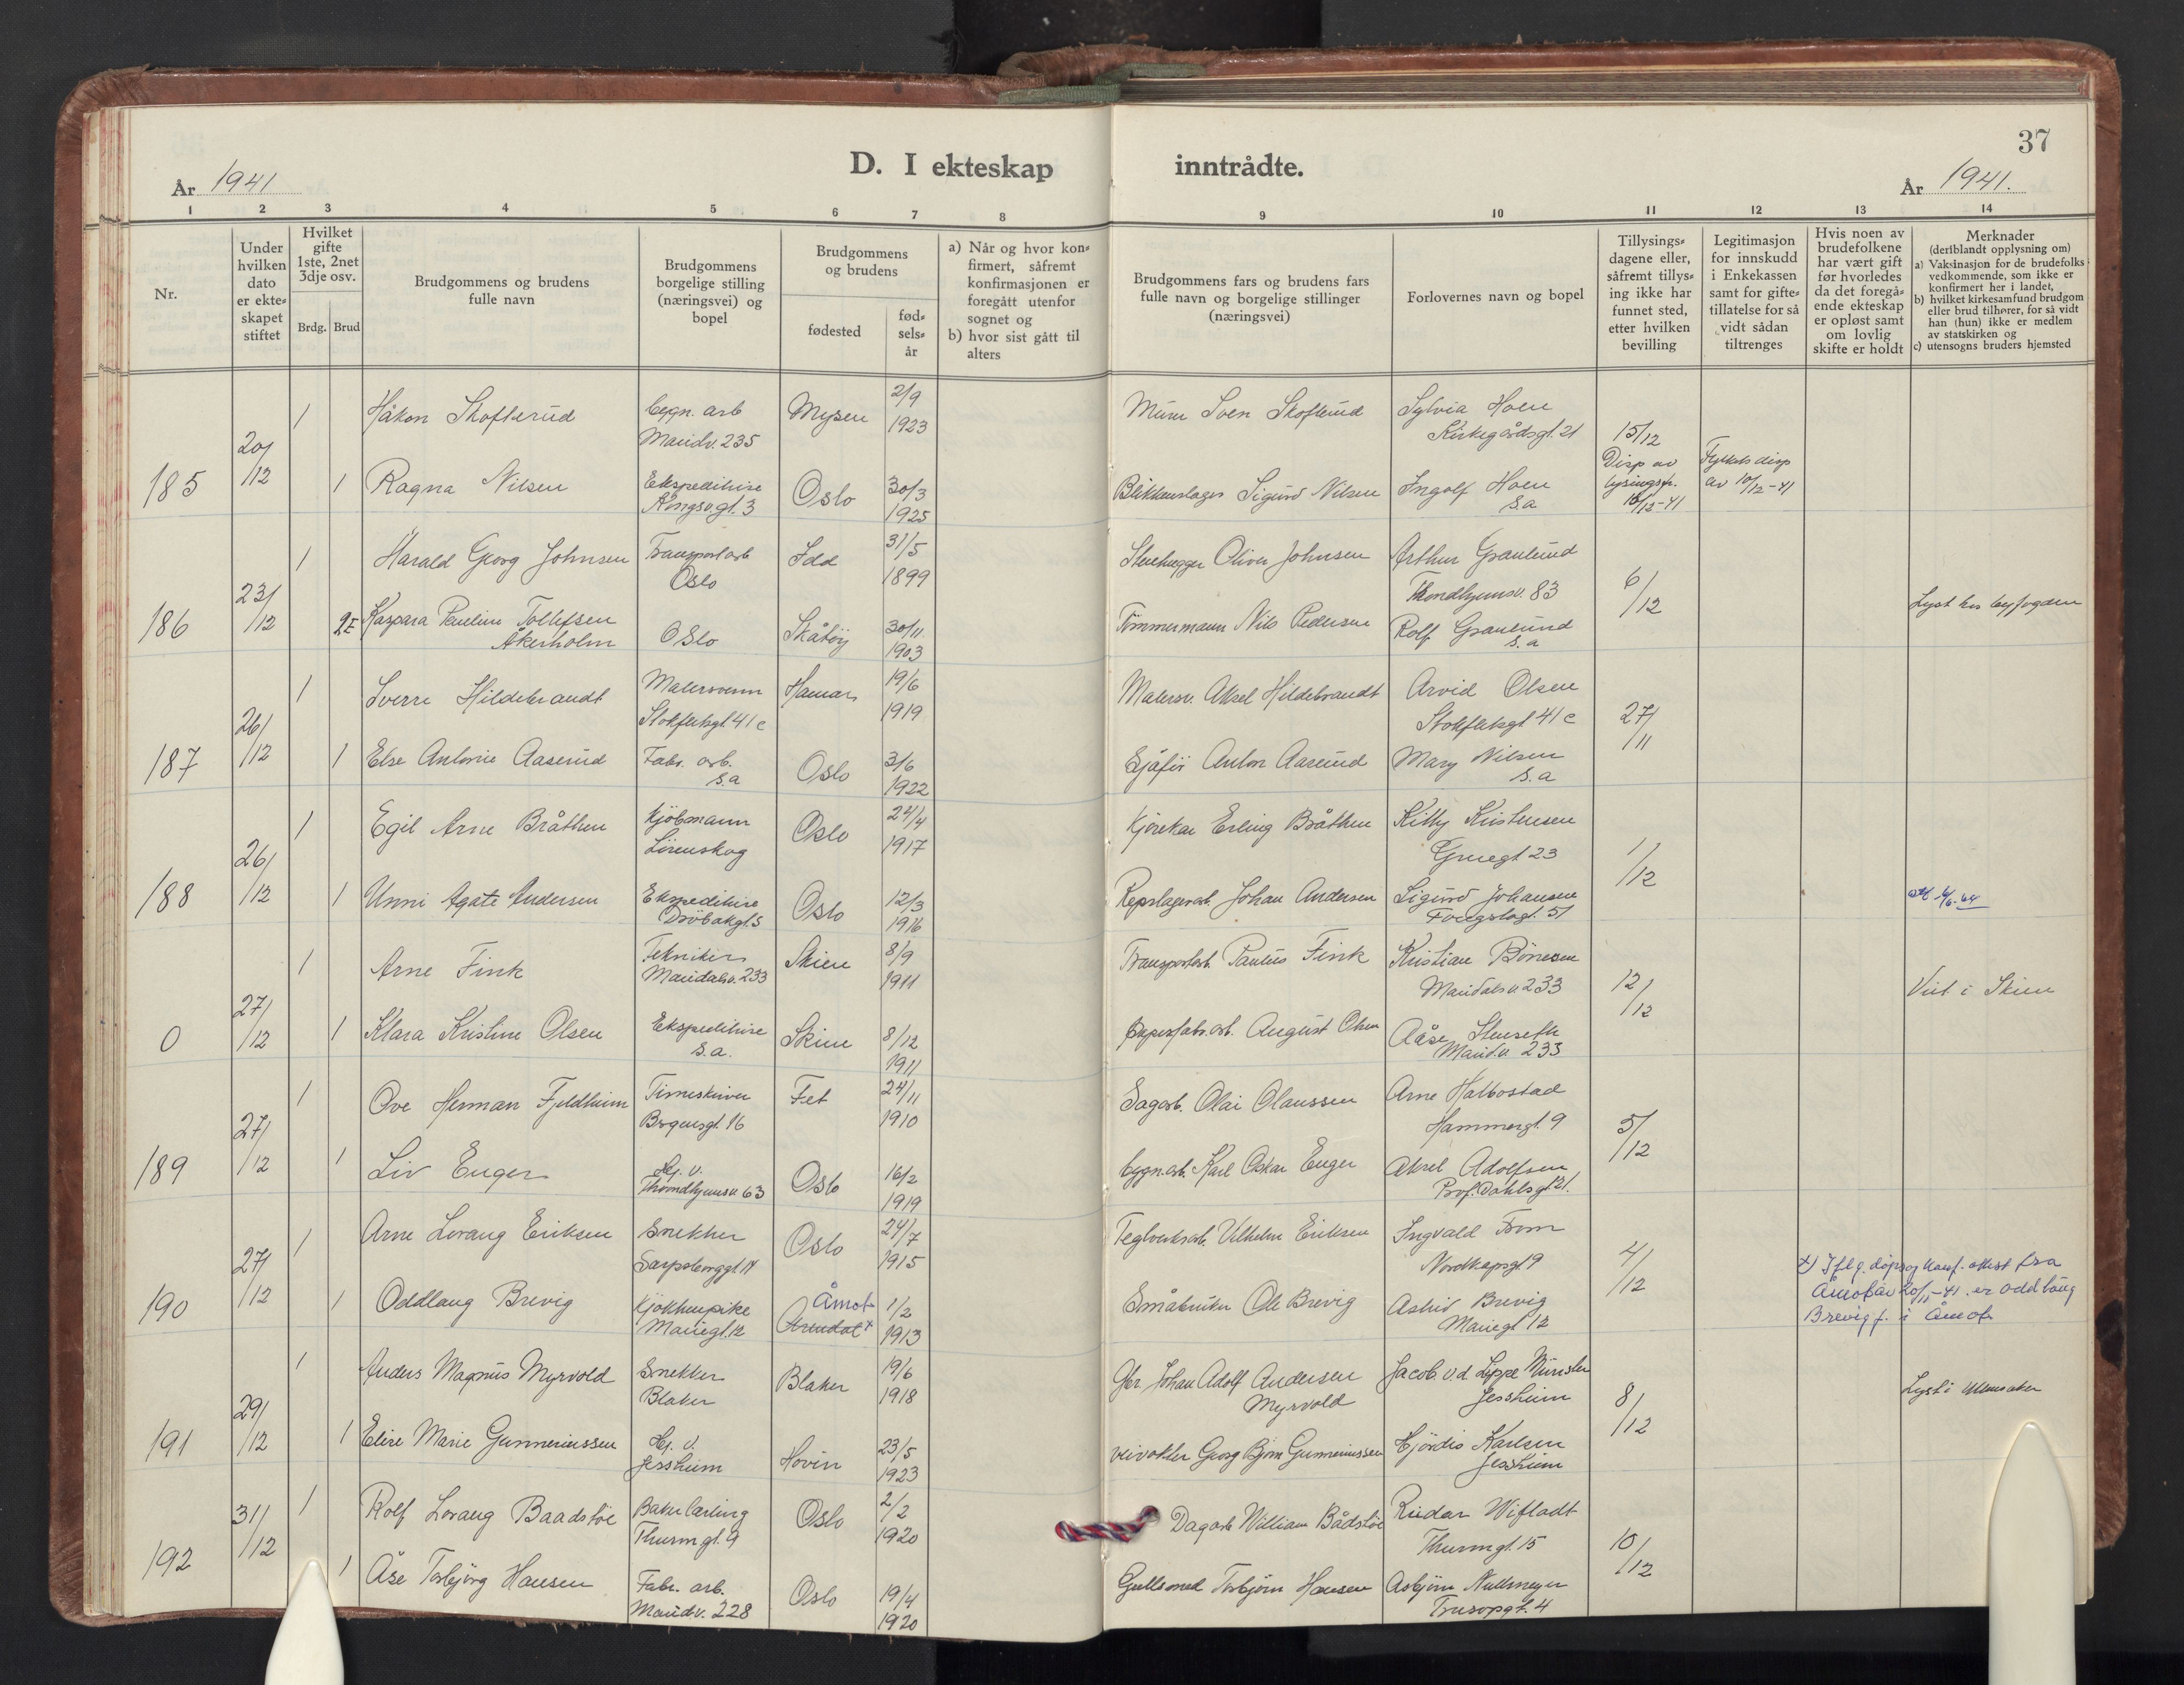 37
D. I ekteskap inntrådte.
År 1941
År 1941.
1 2 3 4 5 6 7 8 9 10 11 12 13 14
Nr.
Under
hvilken
dato
er ekte-
skapet
stiftet
Hvilket
gifte
1ste, 2net
3dje osv.
Brdg. Brud
Brudgommens og brudens
fulle navn
Brudgommens
borgelige stilling
(næringsvei) og
bopel
Brudgommens
og brudens
fødested
fød-
sels-
år
a) Når og hvor kon-
firmert, såfremt
konfirmasjonen er
foregått utenfor
sognet og
b) hvor sist gått til
alters
Brudgommens fars og brudens fars
fulle navn og borgelige stillinger
(næringsvei)
Forlovernes navn og bopel
Tillysings-
dagene eller,
såfremt tillys-
ing ikke har
funnet sted,
etter hvilken
bevilling
Legitimasjon
for innskudd
i Enkekassen
samt for gifte-
tillatelse for så
vidt sådan
tiltrenges
Hvis noen av
brudefolkene
har vært gift
før hvorledes
da det foregå-
ende ekteskap
er opløst samt
om lovlig
skifte er holdt
Merknader
(deriblandt opplysning om)
a) Vaksinasjon for de brudefolks
vedkommende, som ikke er
konfirmert her i landet,
b) hvilket kirkesamfund brudgom
eller brud tilhører, for så vidt
han (hun) ikke er medlem
av statskirken og
c) utensogns bruders hjemsted
185 20/12
1 Håkon Skofterud bygn. arb Mysen 2/9 Murer Sven Skofterud Sylvia Hoen
Maridv. 235 1923 Kirkegårdsgt. 21 15/12
1 Ragna Nilsen Ekspeditrise Oslo 30/3 Blikkenslager Sigurd Nilsen Ingolf Hoen Disp av lysingsfr. Fylkets disp
Kongsv.gt. 3 1925 s.a 10/12-41 av 10/12-41
186 23/12
1 Harald Georg Johnsen Transportarb Idd 31/5 Stenhugger Oliver Johnsen Arthur Granlund
Oslo 1899 Trondhjemsv. 83 6/12
2E Kaspara Pauline Tollefsen Oslo Skåtøy 30/11 Tømmermann Nils Pedersen Rolf Granlund Lyst hos byfogden
Åkerholm 1903 s.a
187 26/12
1 Sverre Hildebrandt Malersvenn Hamar 19/6 Malersv. Aksel Hildebrandt Arvid Olsen
Stokfletsgt 41c 1919 Stokfletsgt 41c 27/11
1 Else Antonie Aaserud Fabr. arb. Oslo 3/6 Sjåfør Anton Aaserud Mary Nilsen
s.a 1922 s.a
188 26/12
1 Egil Arne Bråthen Kjøbmann Oslo 24/4 Kjørekar Erling Bråthen Kitty Kristensen
Lørenskog 1917 Gruegt 23 1/12
1 Unni Agate Andersen Ekspeditrise Oslo 12/3 Repslagerarb. Johan Andersen Sigurd Johansen
Drøbakgt. 5 1916 51
0 27/12
1 Arne Fink Tekniker Skien 8/9 Transportarb. Paulus Fink Kristian Bönesen
Maridalsv. 233 1911 Maridalsv. 233 12/12
Viet i Skien
1 Klara Kristine Olsen Ekspeditrise Skien 8/12 Papirfabr.arb. August Olsen Aåse Stenseth
s.a. 1911 Marid.v. 233
189 27/12
1 Ove Herman Fjeldheim Timeskriver Fet 24/11 Sagarb. Olai Olaussen Arne Halbostad
Bergensgt. 16 1910 Hammergt. 9 5/12
1 Liv Enger Hj. v. Oslo 16/2 bygn.arb. Karl Oskar Enger Aksel Adolfsen
Throndhjemsv. 63 1919 Prof. Dahlsgt 21.
190 27/12
1 Arne Lorang Eriksen Snekker Oslo 24/7 Teglverksarb. Vilhelm Eriksen Ingvald From
Sarpsborggt. 14 1915 Nordkapsgt 9 4/12
1 Oddlaug Brevig Kjøkkenpike Åmot 1/2 Småbruker Ole Brevig Astrid Brevig
Mariegt. 12 Arendal x 1913 Mariegt 12
x) Iflg. dåps og konf. attest fra
Åmot av 20/11-41 er Oddlaug
Brevig f. i Åmot
191 29/12
1 Anders Magnus Myrvold Snekker Blaker 19/6 Gbr. Johan Adolf Andersen Jacob v.d Lippe Münster
Blaker 1918 Myrvold Jessheim 8/12
Lyst i Ullensaker
1 Elise Marie Gunneriussen Hj. v. Hovin 23/5 veivokter Georg Bjørn Gunneriussen Hjördis Karlsen
Jessheim 1923 Jessheim
192 31/12
1 Rolf Lorang Baadstøe Bakerlærling Oslo 2/2 Dagarb William Bådstøe Reidar Wifladt
Thurmgt. 9 1920 Thurmgt. 15 10/12
1 Åse Torbjørg Hansen Fabr. arb. Oslo 19/4 Gullsmed Torbjørn Hansen Asbjørn Nullmeyer
Maridv. 228 1920 4